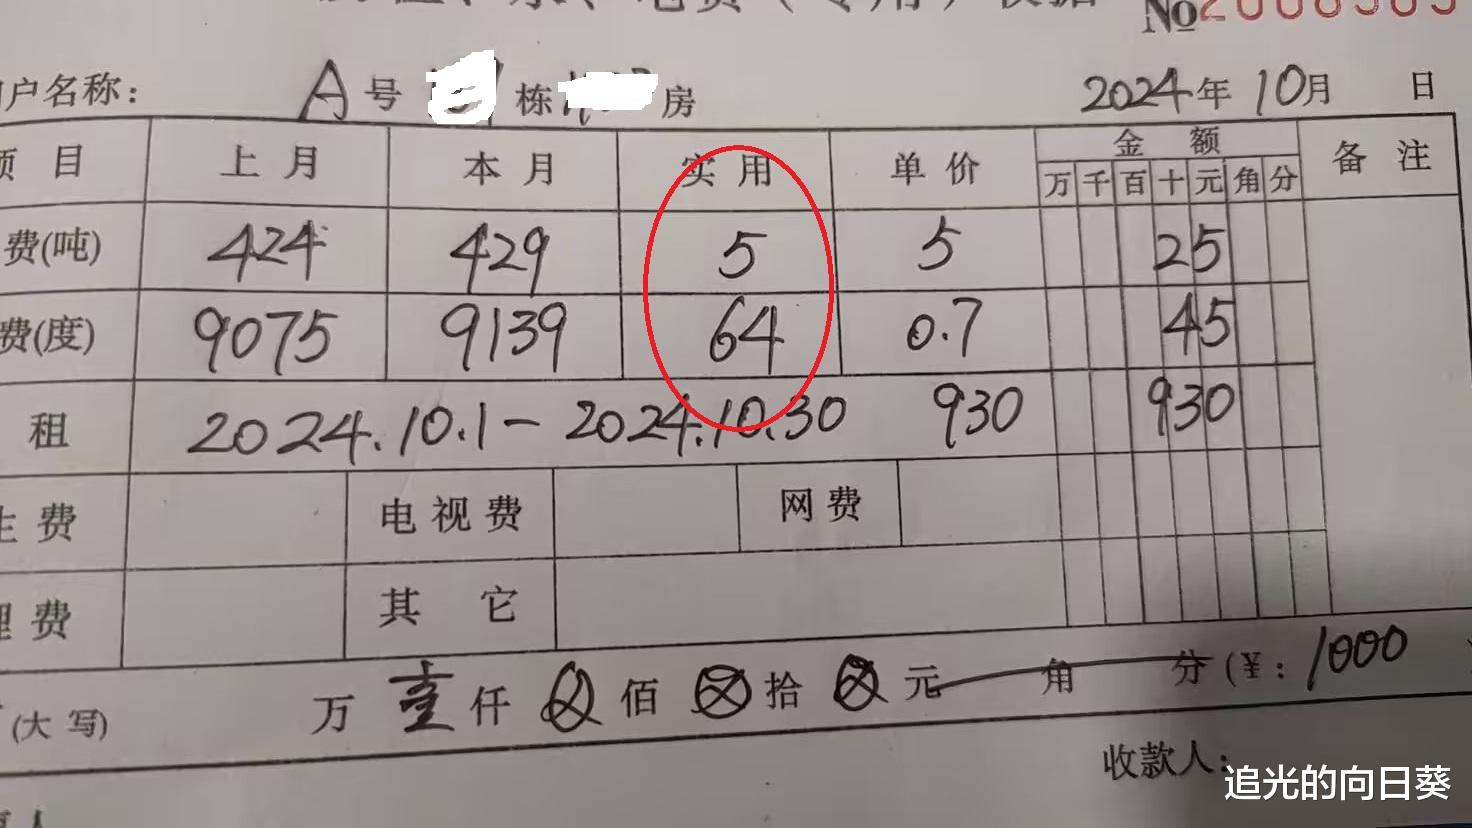 电费(专用)收据
№2008305
户名称: A号 栋 房 2024年10月 日
项目 上月 本月 实用 单价 金额 备注
万 千 百 十 元 角 分
费(吨) 424 429 5 5 25
费(度) 9075 9139 64 0.7 45
租 2024.10.1-2024.10.30 930 930
费 电视费 网费
理费 其它
(大写) 万 壹 仟 佰 拾 元 角 分(¥: 1000
收款人:
追光的向日葵